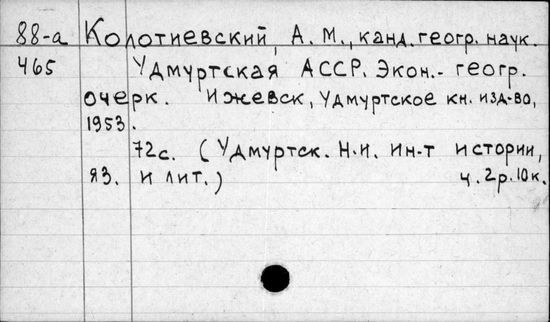 88-а Колотиевский, А. М., канд. геогр. наук.
465 Удмуртская АССР. Экон.- геогр.
очерк. Ижевск, Удмуртское кн. изд-во,
1953.
72с. (Удмуртск. Н.-и. ин-т истории,
яз. и лит.) ц. 2р. 10к.